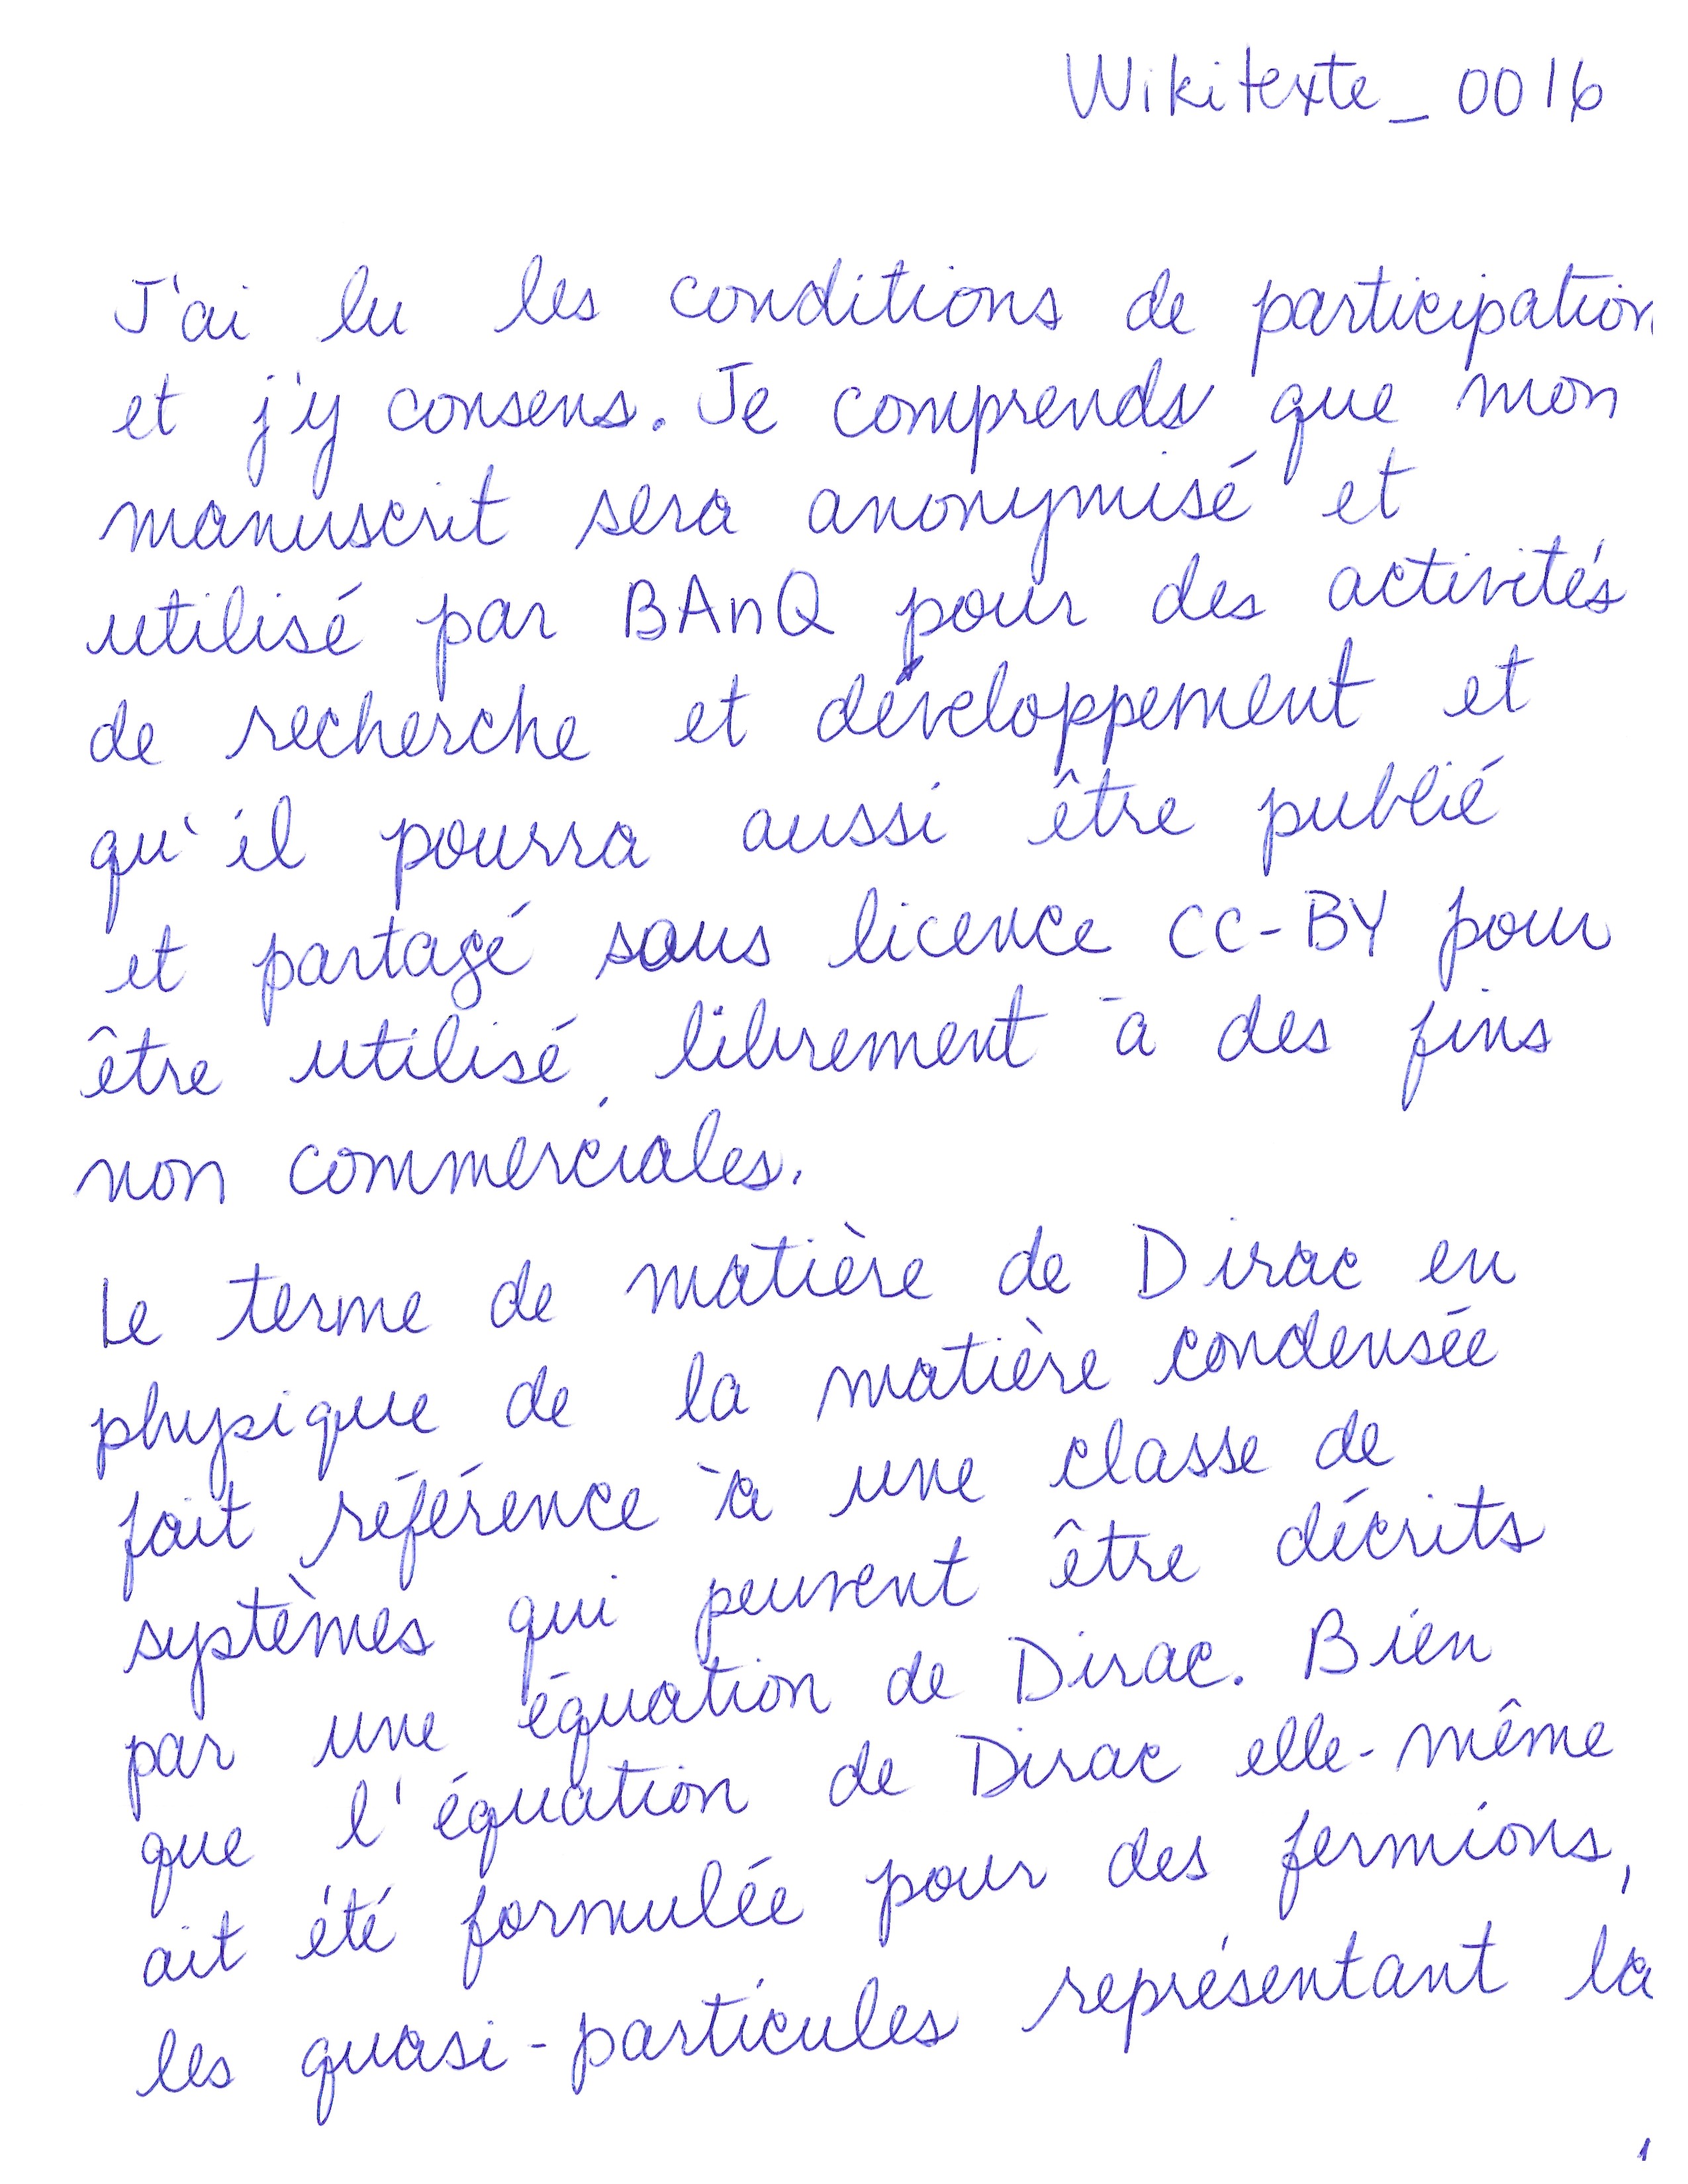 Wikitexte_0016
J'ai lu les conditions de participation
et j'y consens. Je comprends que mon
manuscrit sera anonymisé et
utilisé par BAnQ pour des activités
de recherche et développement et
qu'il pourra aussi être publié
et partagé sous licence CC-BY pour
être utilisé librement à des fins
non commerciales.
Le terme de matière de Dirac en
physique de la matière condensée
fait référence à une classe de
systèmes qui peuvent être décrits
par une équation de Dirac. Bien
que l'équation de Dirac elle-même
ait été formulée pour des fermions,
les quasi-particules représentant la
1